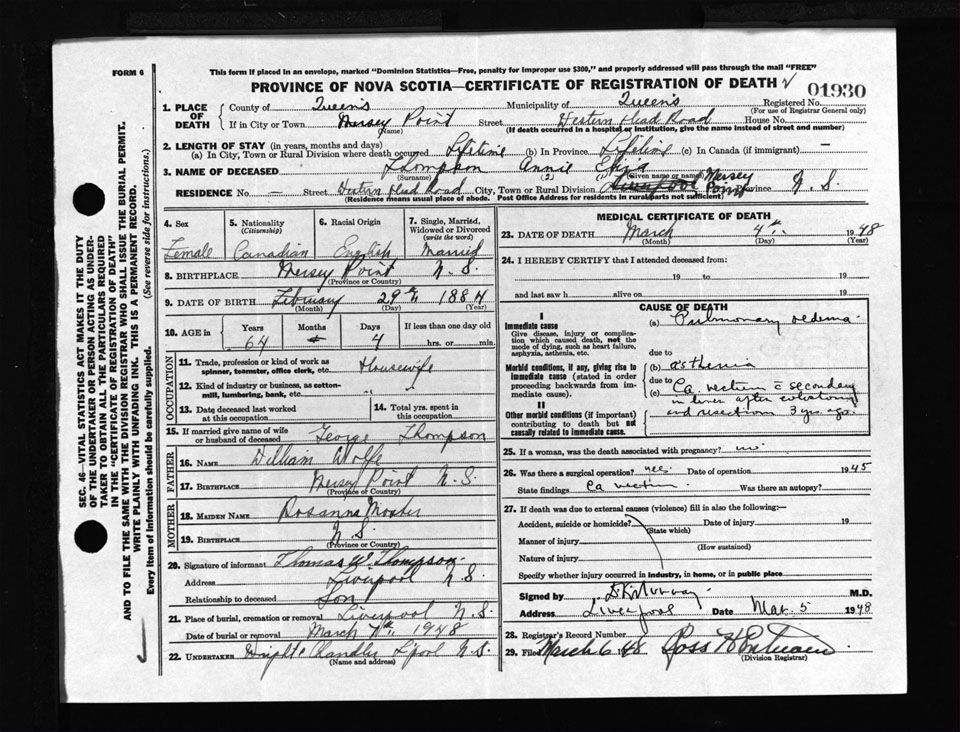 FORM 6
This form if placed in an envelope, marked "Dominion Statistics—Free, penalty for improper use $300," and properly addressed will pass through the mail "FREE"
PROVINCE OF NOVA SCOTIA—CERTIFICATE OF REGISTRATION OF DEATH
01930
1. PLACE OF DEATH
County of Queens Municipality of Queens Registered No.
(For use of Registrar General only)
If in City or Town Mersey Point Street Western Head Road House No.
(Name) (If death occurred in a hospital or institution, give the name instead of street and number)
2. LENGTH OF STAY (in years, months and days)
(a) In City, Town or Rural Division where death occurred Lifetime (b) In Province Lifetime (c) In Canada (if immigrant) —
3. NAME OF DECEASED Thompson Annie
(Surname) (Given name or names)
RESIDENCE No. — Street Western Head Road City, Town or Rural Division Liverpool Mersey Point Province N.S.
(Residence means usual place of abode. Post Office Address for residents in rural parts not sufficient)
4. Sex Female
5. Nationality (Citizenship) Canadian
6. Racial Origin English
7. Single, Married, Widowed or Divorced (write the word) Married
8. BIRTHPLACE Mersey Point N.S.
(Province or Country)
9. DATE OF BIRTH February 29th 1884
(Month) (Day) (Year)
10. AGE in Years Months Days If less than one day old
64 - 4 hrs. or min.
OCCUPATION
11. Trade, profession or kind of work as spinner, teamster, office clerk, etc. Housewife
12. Kind of industry or business, as cotton-mill, lumbering, bank, etc. " "
13. Date deceased last worked at this occupation
14. Total yrs. spent in this occupation
15. If married give name of wife or husband of deceased George Thompson
FATHER
16. NAME William Wolfe
17. BIRTHPLACE Mersey Point N.S.
(Province or Country)
MOTHER
18. MAIDEN NAME Rosanna Mosher
19. BIRTHPLACE N.S.
(Province or Country)
20. Signature of informant Thomas W. Thompson
Address Liverpool N.S.
Relationship to deceased Son
21. Place of burial, cremation or removal Liverpool N.S.
Date of burial or removal March 7th 1948
22. UNDERTAKER Chandler L'pool N.S.
(Name and address)
MEDICAL CERTIFICATE OF DEATH
23. DATE OF DEATH March 4th 1948
(Month) (Day) (Year)
24. I HEREBY CERTIFY that I attended deceased from:
19 to 19
and last saw h alive on 19
CAUSE OF DEATH
I
Immediate cause
Give disease, injury or complication which caused death, not the mode of dying, such as heart failure, asphyxia, asthenia, etc.
(a) Pulmonary oedema
due to
Morbid conditions, if any, giving rise to immediate cause (stated in order proceeding backwards from immediate cause).
(b) asthenia
due to
(c) Ca. rectum c̄ secondary
in liver after colostomy
and resection 3 yrs. ago.
II
Other morbid conditions (if important) contributing to death but not causally related to immediate cause.
25. If a woman, was the death associated with pregnancy? no
26. Was there a surgical operation? yes Date of operation 1945
State findings Ca rectum Was there an autopsy?
27. If death was due to external causes (violence) fill in also the following:—
Accident, suicide or homicide? Date of injury 19
(State which)
Manner of injury
(How sustained)
Nature of injury
Specify whether injury occurred in industry, in home, or in public place
Signed by Murray M.D.
Address Liverpool Date Mar. 5 1948
28. Registrar's Record Number
29. Filed March 6 1948 Ross H.
(Division Registrar)
SEC. 46—VITAL STATISTICS ACT MAKES IT THE DUTY
OF THE UNDERTAKER OR PERSON ACTING AS UNDER-
TAKER TO OBTAIN ALL THE PARTICULARS REQUIRED
IN THE "CERTIFICATE OF REGISTRATION OF DEATH"
AND TO FILE THE SAME WITH THE DIVISION REGISTRAR WHO SHALL ISSUE THE BURIAL PERMIT.
WRITE PLAINLY WITH UNFADING INK. THIS IS A PERMANENT RECORD.
Every item of information should be carefully supplied. (See reverse side for instructions.)